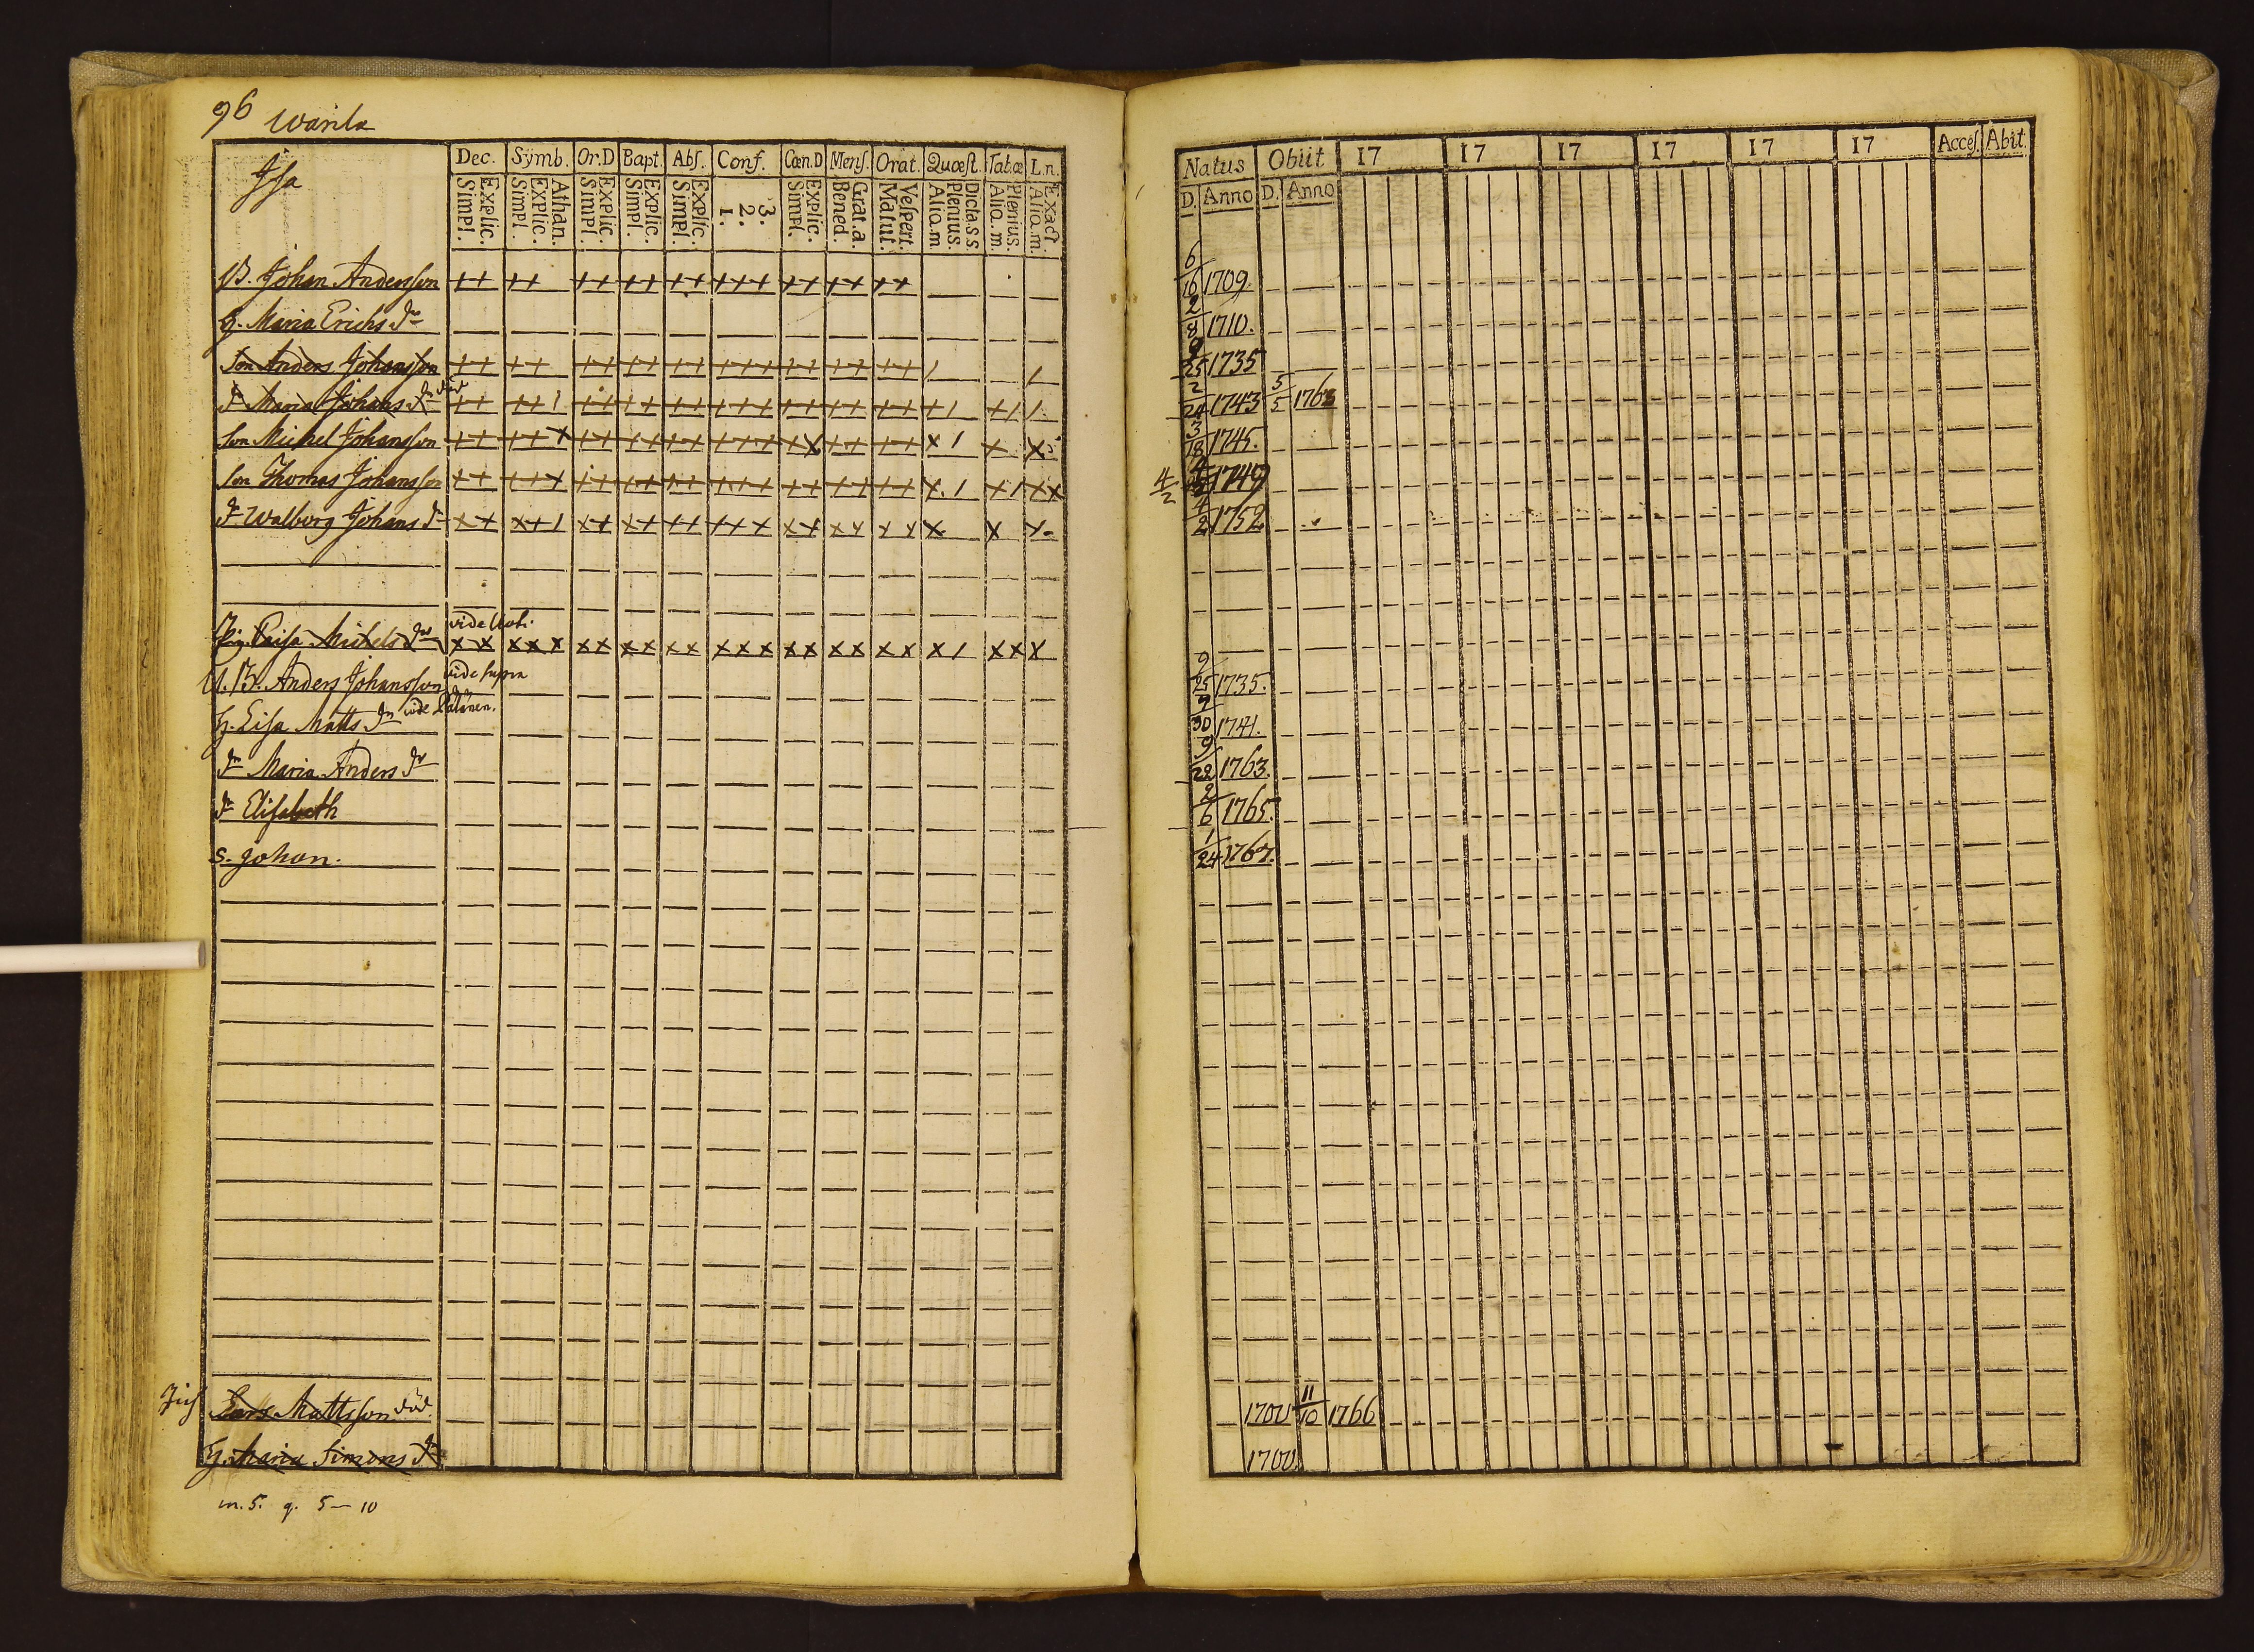 96 Warila
Isa
Dec. Symb. Or.D Bapt. Abſ. Conf. Cœn.D Menſ. Orat. Quœſt. Tab.œ L.n.
Explic. Simpl. Athan. Explic. Simpl. Explic. Simpl. Explic. Simpl. Explic. Simpl. 3. 2. 1. Explic. Simpl. Grat.a. Bened. Veſpert. Matut. Dicla.s s. Plenius. Aliq.m. Plenius. Aliq.m. Exact. Aliq.m.
Natus Obiit 17 17 17 17 17 17 Acceſ. Abit.
D. Anno D. Anno
B. Johan Andersson ++ ++ ++ ++ ++ +++ ++ ++ ++ 6/16 1709.
H. Maria Erichs dr 2/8 1710.
Son Anders Johansson ++ ++ ++ ++ ++ +++ ++ ++ ++ / / 9/25 1735
dr Maria Johans dr död ++ ++ / ++ ++ ++ +++ ++ ++ ++ + / + / / 2/24 1743 5/5 1763
Son Michel Johansson ++ ++x ++ ++ ++ +++ +x ++ ++ x / x x 3/18 1745.
Son Thomas Johansson ++ +++ ++ ++ ++ +++ ++ ++ ++ x / x / xx 4/2 1749
dr Walborg Johans dr x+ x+ / x+ x+ ++ ++x xx xx xx x x x 4/2 1752
vide
Pig. Caisa Michels dr x x x x x x x x x x x x x x x x x x x x x x / x x x
U. B. Anders Johansson vide supra 9/25 1735.
H. Lisa Matts dr vide 9/30 1741.
dr Maria Anders dr 9/22 1763.
dr Elisabeth 2/6 1765.
s. Johan. 1/24 1767.
Lars Mattsson död. 1700 11/10 1766
H. Maria Simons dr 1700.
m. 5. q. 5 — 10